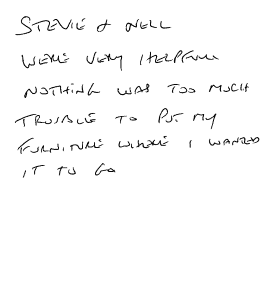 STEVIE & NELL
WERE VERY HELPFUL
NOTHING WAS TOO MUCH
TROUBLE TO PUT MY
FURNITURE WHERE I WANTED
IT TO GO